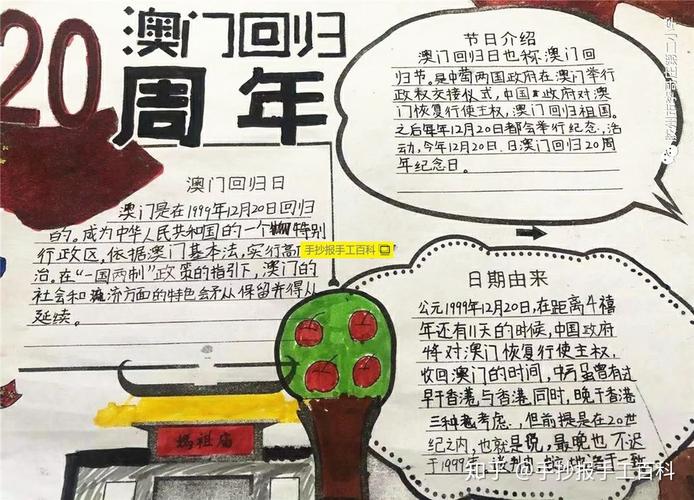 20
澳门回归
周年
节日介绍
澳门回归日也称澳门回
归节。是中葡两国政府在澳门举行
政权交接仪式,中国政府对澳
门恢复行使主权,澳门回归祖国。
之后每年12月20日都会举行纪念,活
动,今年12月20日,日澳门回归20周
年纪念日。
澳门回归日
澳门是在1999年12月20日回归
的。成为中华人民共和国的一个特别
行政区,依据澳门基本法,实行高
治。在“一国两制”政策的指引下,澳门的
社会和经济方面的特色会予以保留并得以
延续。
手抄报手工百科
日期由来
公元1999年12月20日,在距离千禧
年还有11天的时候,中国政府
将对澳门恢复行使主权,
收回澳门的时间,中方虽曾有过
早于香港,与香港同时,晚于香港
三种考虑.,但前提是在20世
纪之内,也就是说,最晚也不迟
于1999年
妈祖庙
知乎 @手抄报手工百科